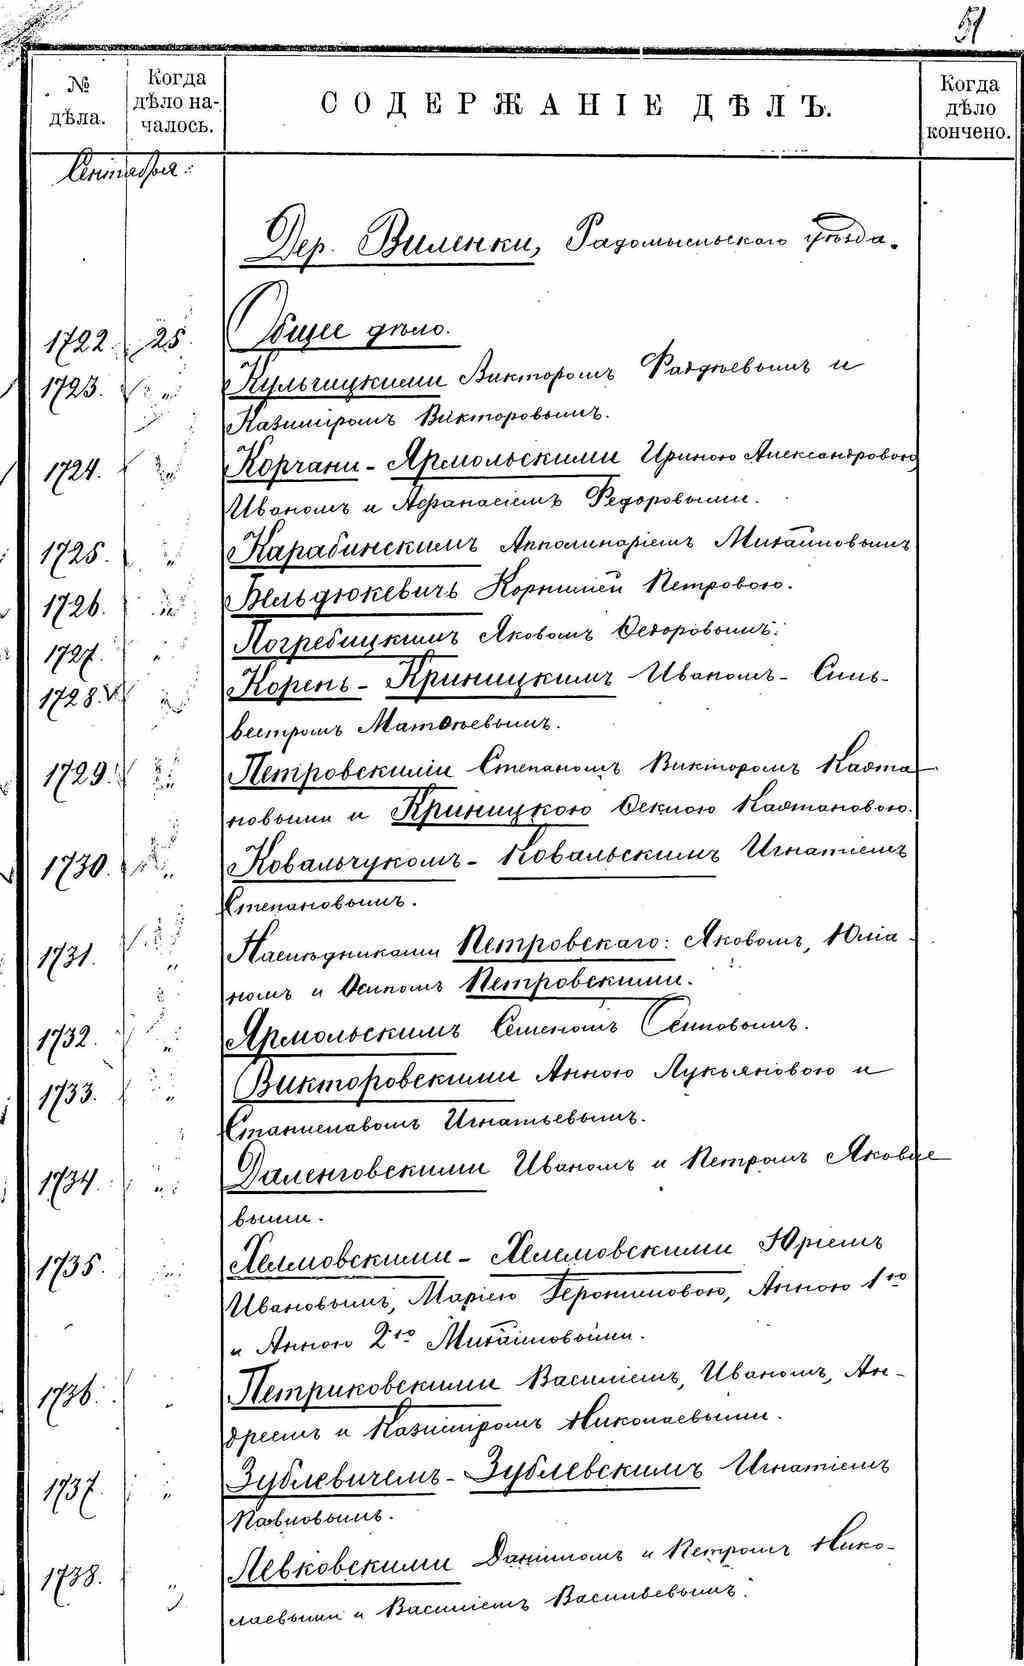 51
№ дѣла.
Когда дѣло на-
чалось.
СОДЕРЖАНІЕ ДѢЛЪ.
Когда дѣло кончено.
Сентября:
Дер. Виленки, Радомысльского уѣзда.
1722. 25. Общее дѣло.
1723. " Кульчицкими Викторомъ Фаддѣевымъ и
Казиміромъ Викторовымъ.
1724. " Корчани - Ярмольскими Ириною Александровою,
Иваномъ и Афанасіемъ Федоровыми.
1725. " Карабинскимъ Апполинаріемъ Михайловымъ
1726. " Бельдюкевичъ Корниліей Петровою.
1727. " Погребицкимъ Яковомъ Ѳедоровымъ.
1728. " Корень - Криницкимъ Иваномъ - Силь-
вестромъ Матвѣевымъ.
1729. " Петровскими Степаномъ Викторомъ Каэта-
новыми и Криницкою Ѳеклою Каэтановою.
1730. " Ковальчукомъ - Ковальскимъ Игнатіемъ
Степановымъ.
1731. " Наслѣдниками Петровскаго: Яковомъ, Юліа-
номъ и Осипомъ Петровскими.
1732. " Ярмольскимъ Семеномъ Осиповымъ.
1733. " Викторовскими Анною Лукьяновою и
Станиславомъ Игнатьевымъ.
1734. " Даленговскими Иваномъ и Петромъ Яковле
выми.
1735. " Хелмовскими - Хелемовскими Юріемъ
Ивановымъ, Маріею Іеронимовою, Анною 1ю
и Анною 2ю Михайловыми.
1736. " Петриковскими Василіемъ, Иваномъ, Ан-
дреемъ и Казиміромъ Николаевыми.
1737. " Зублевичемъ - Зублевскимъ Игнатіемъ
Павловымъ.
1738. " Левковскими Даніиломъ и Петромъ Нико-
лаевыми и Василіемъ Васильевымъ.